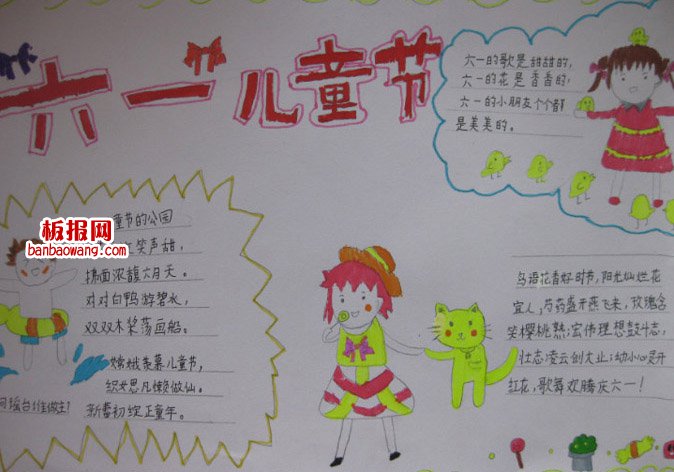 六一儿童节
六一的歌是甜甜的，
六一的花是香香的，
六一的小朋友个个都
是美美的。
童节的公园
笑声甜，
拂面浓馥六月天。
对对白鸭游碧水，
双双木桨荡画船。
嫦娥羡慕儿童节，
织女思凡懒做仙。
新蕾初绽正童年。
板报网
banbaowang.com
鸟语花香好时节，阳光灿烂花
宜人，芍药盛开燕飞来，玫瑰含
笑樱桃熟；宏伟理想鼓斗志，
壮志凌云创大业；幼小心灵开
红花，歌舞欢腾庆六一！